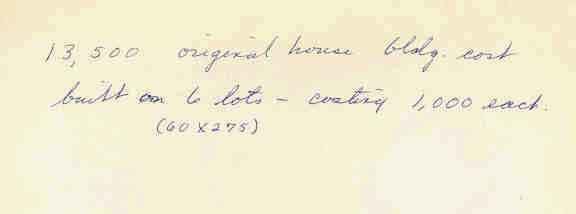 13,500 original house bldg. cost
built on 6 lots - costing 1,000 each.
(60 x 275)